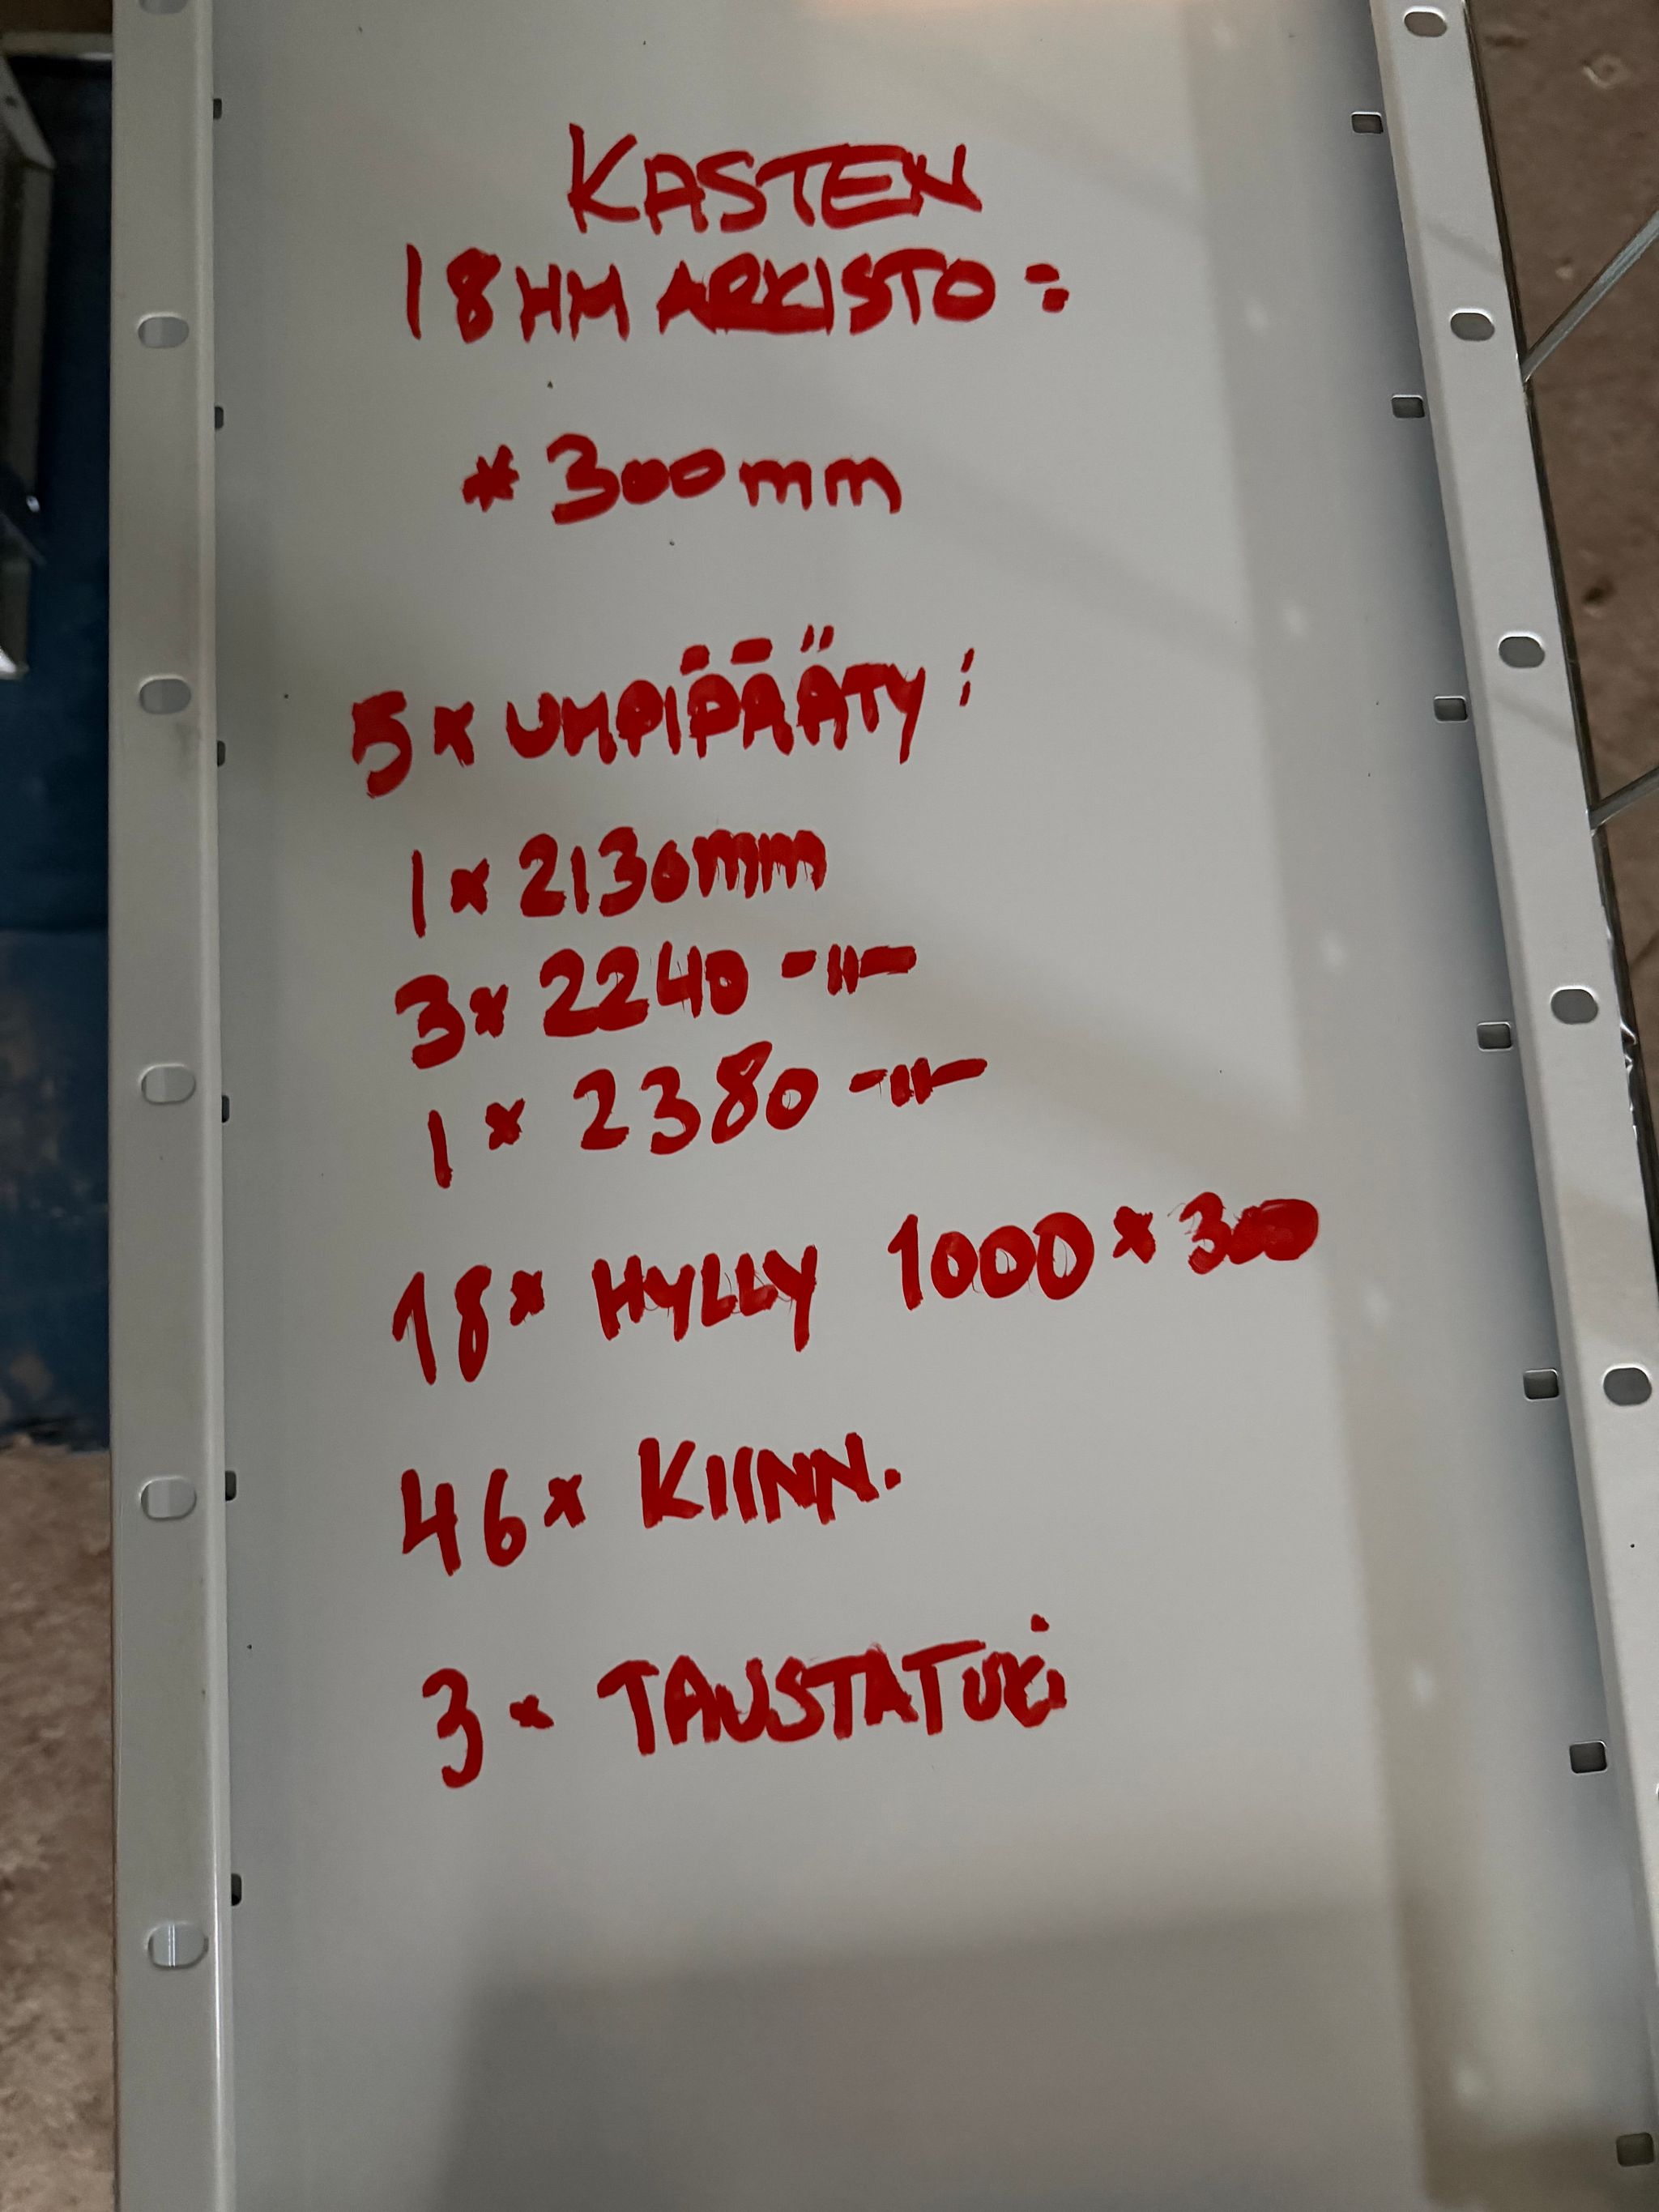 KASTEN
18HM ARKISTO:
* 300mm
5x UMPIPÄÄTY:
1x 2130mm
3x 2240 -"-
1x 2380 -"-
18x HYLLY 1000x300
46x KIINN.
3x TAUSTATUKi